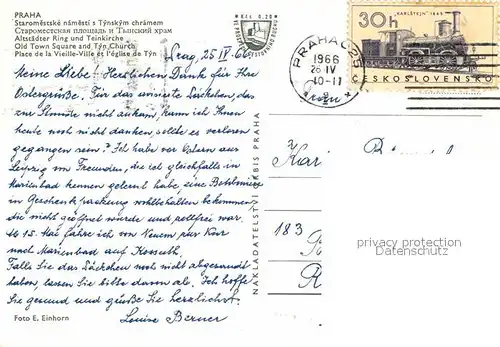 PRAHA
Staroměstské náměstí s Týnským chrámem
Староместская площадь и Тынский храм
Altstädter Ring und Teinkirche
Old Town Square and Týn Church
Place de la Vieille-Ville et l'église de Týn
Kčs 0,20
Prag, 25 IV. 66
Meine Liebe! Herzlichen Dank für Ihre
Ostergrüße. Für das avisierte Päckchen, das
zur Stunde nicht ankam, kann ich Ihnen
heute noch nicht danken, sollte es verloren
gegangen sein? Ich habe vor Ostern aus
Leipzig von Freunden, die ich gleichfalls in
Marienbad kennen gelernt habe, eine
in Geschenkpackung wohlbehalten bekommen,
die nicht geöffnet wurde und zollfrei war.
15. Mai fahre ich von Neuem zur Kur
nach Marienbad auf
Falls Sie das Päckchen noch nicht abgesandt
haben, lassen Sie bitte davon ab. Ich hoffe
Sie gesund und grüße Sie herzlichst
Louise Berner
Foto E. Einhorn
NAKLADATELSTVÍ ORBIS PRAHA
PRAHA 25
1966
26 IV
10-11
KARLŠTEJN 1865
30h
ČESKOSLOVENSKO
183
privacy protection
www.ansichtskarten-center.de